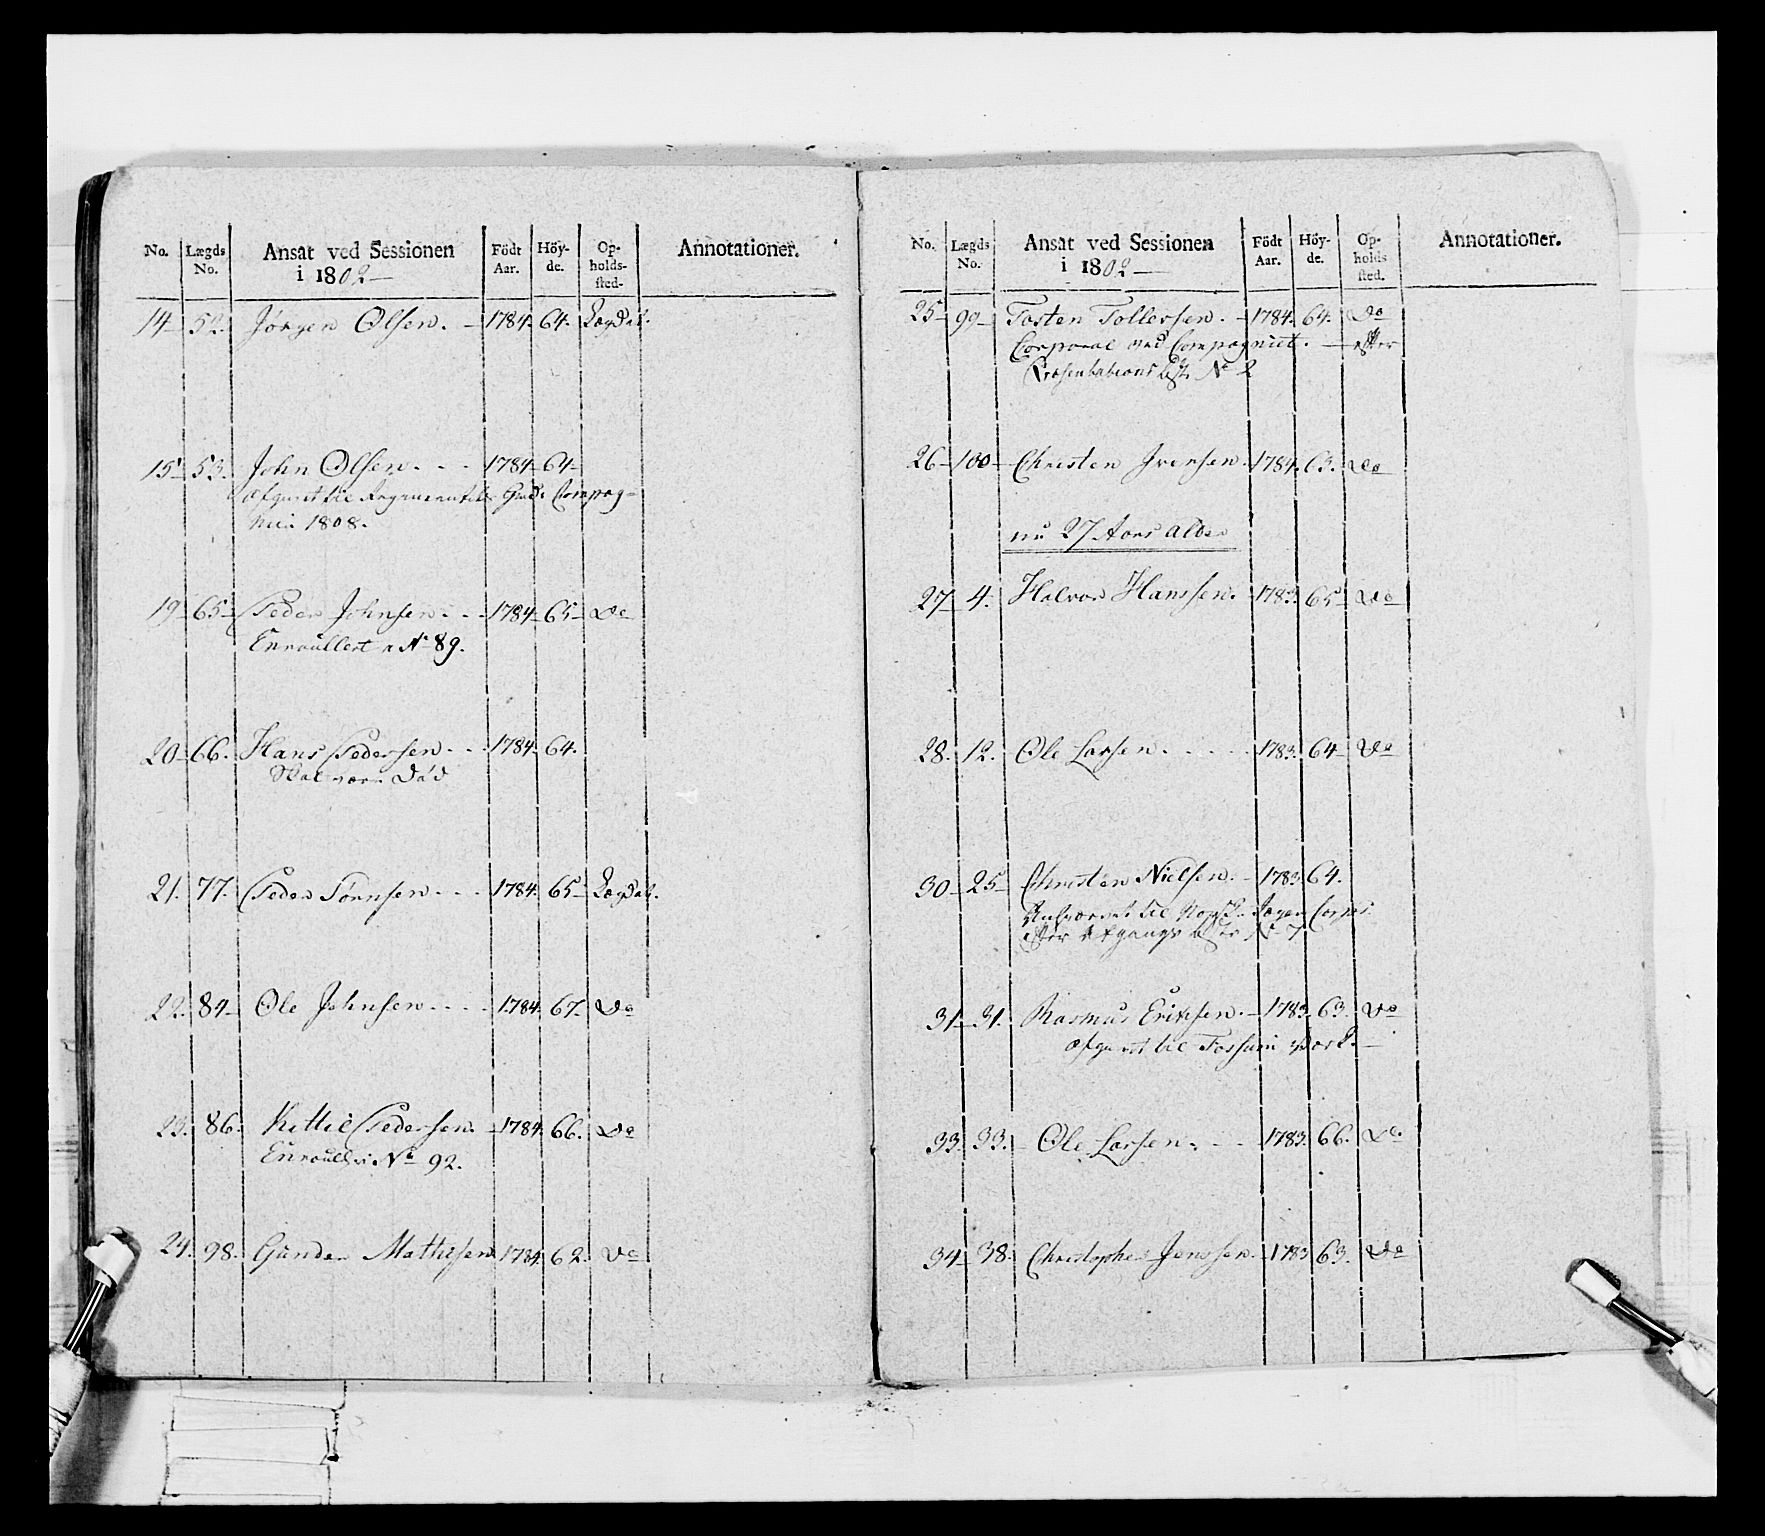 No. Lægds No. Ansat ved Sessionen i 1802 Födt Aar. Höyde. Opholdssted. Annotationer.
14 52. Jörgen Olsen. 1784. 64. Sogdal.
15 53. John Olsen 1784 64
Afgaaet til Regimentets Gred. Compag-
nie 1808.
19 65 Peder Johnsen 1784 65 Do
Enroullert No 89.
20 66. Hans Pedersen 1784. 64.
Skal være Död
21. 77. Peder Törrisen 1784. 65 Sogdal.
22. 84 Ole Johnsen 1784. 67. Do
23. 86. Kittil Pedersen. 1784. 66. Do
Enroull. No 92.
24. 98. Gunder Mathisen 1784. 62. Do
No. Lægds No. Ansat ved Sessionen i 1802 Födt Aar. Höyde. Opholdssted. Annotationer.
25 99 Tosten Tollefsen. 1784. 64. Do
Corporal ved Compagniet. efter
Præsentations List. No 2
26 100 Christen Iversen. 1784. 63. Do
nu 27 Aars Alder
27 4. Halvor Hanssen. 1783. 65 Do
28. 12. Ole Larsen 1783. 64 Do
30 25 Christen Nielsen. 1783. 64.
til Norske Jæger Corps
efter Afgangs Liste No 7.
31 31. Rasmus Eriksen. 1783. 63. Do
Afgaaet til Fossum Værk.
33. 33. Ole Larsen. 1783. 66. Do
34 38. Christopher Jenssen. 1783 63. Do